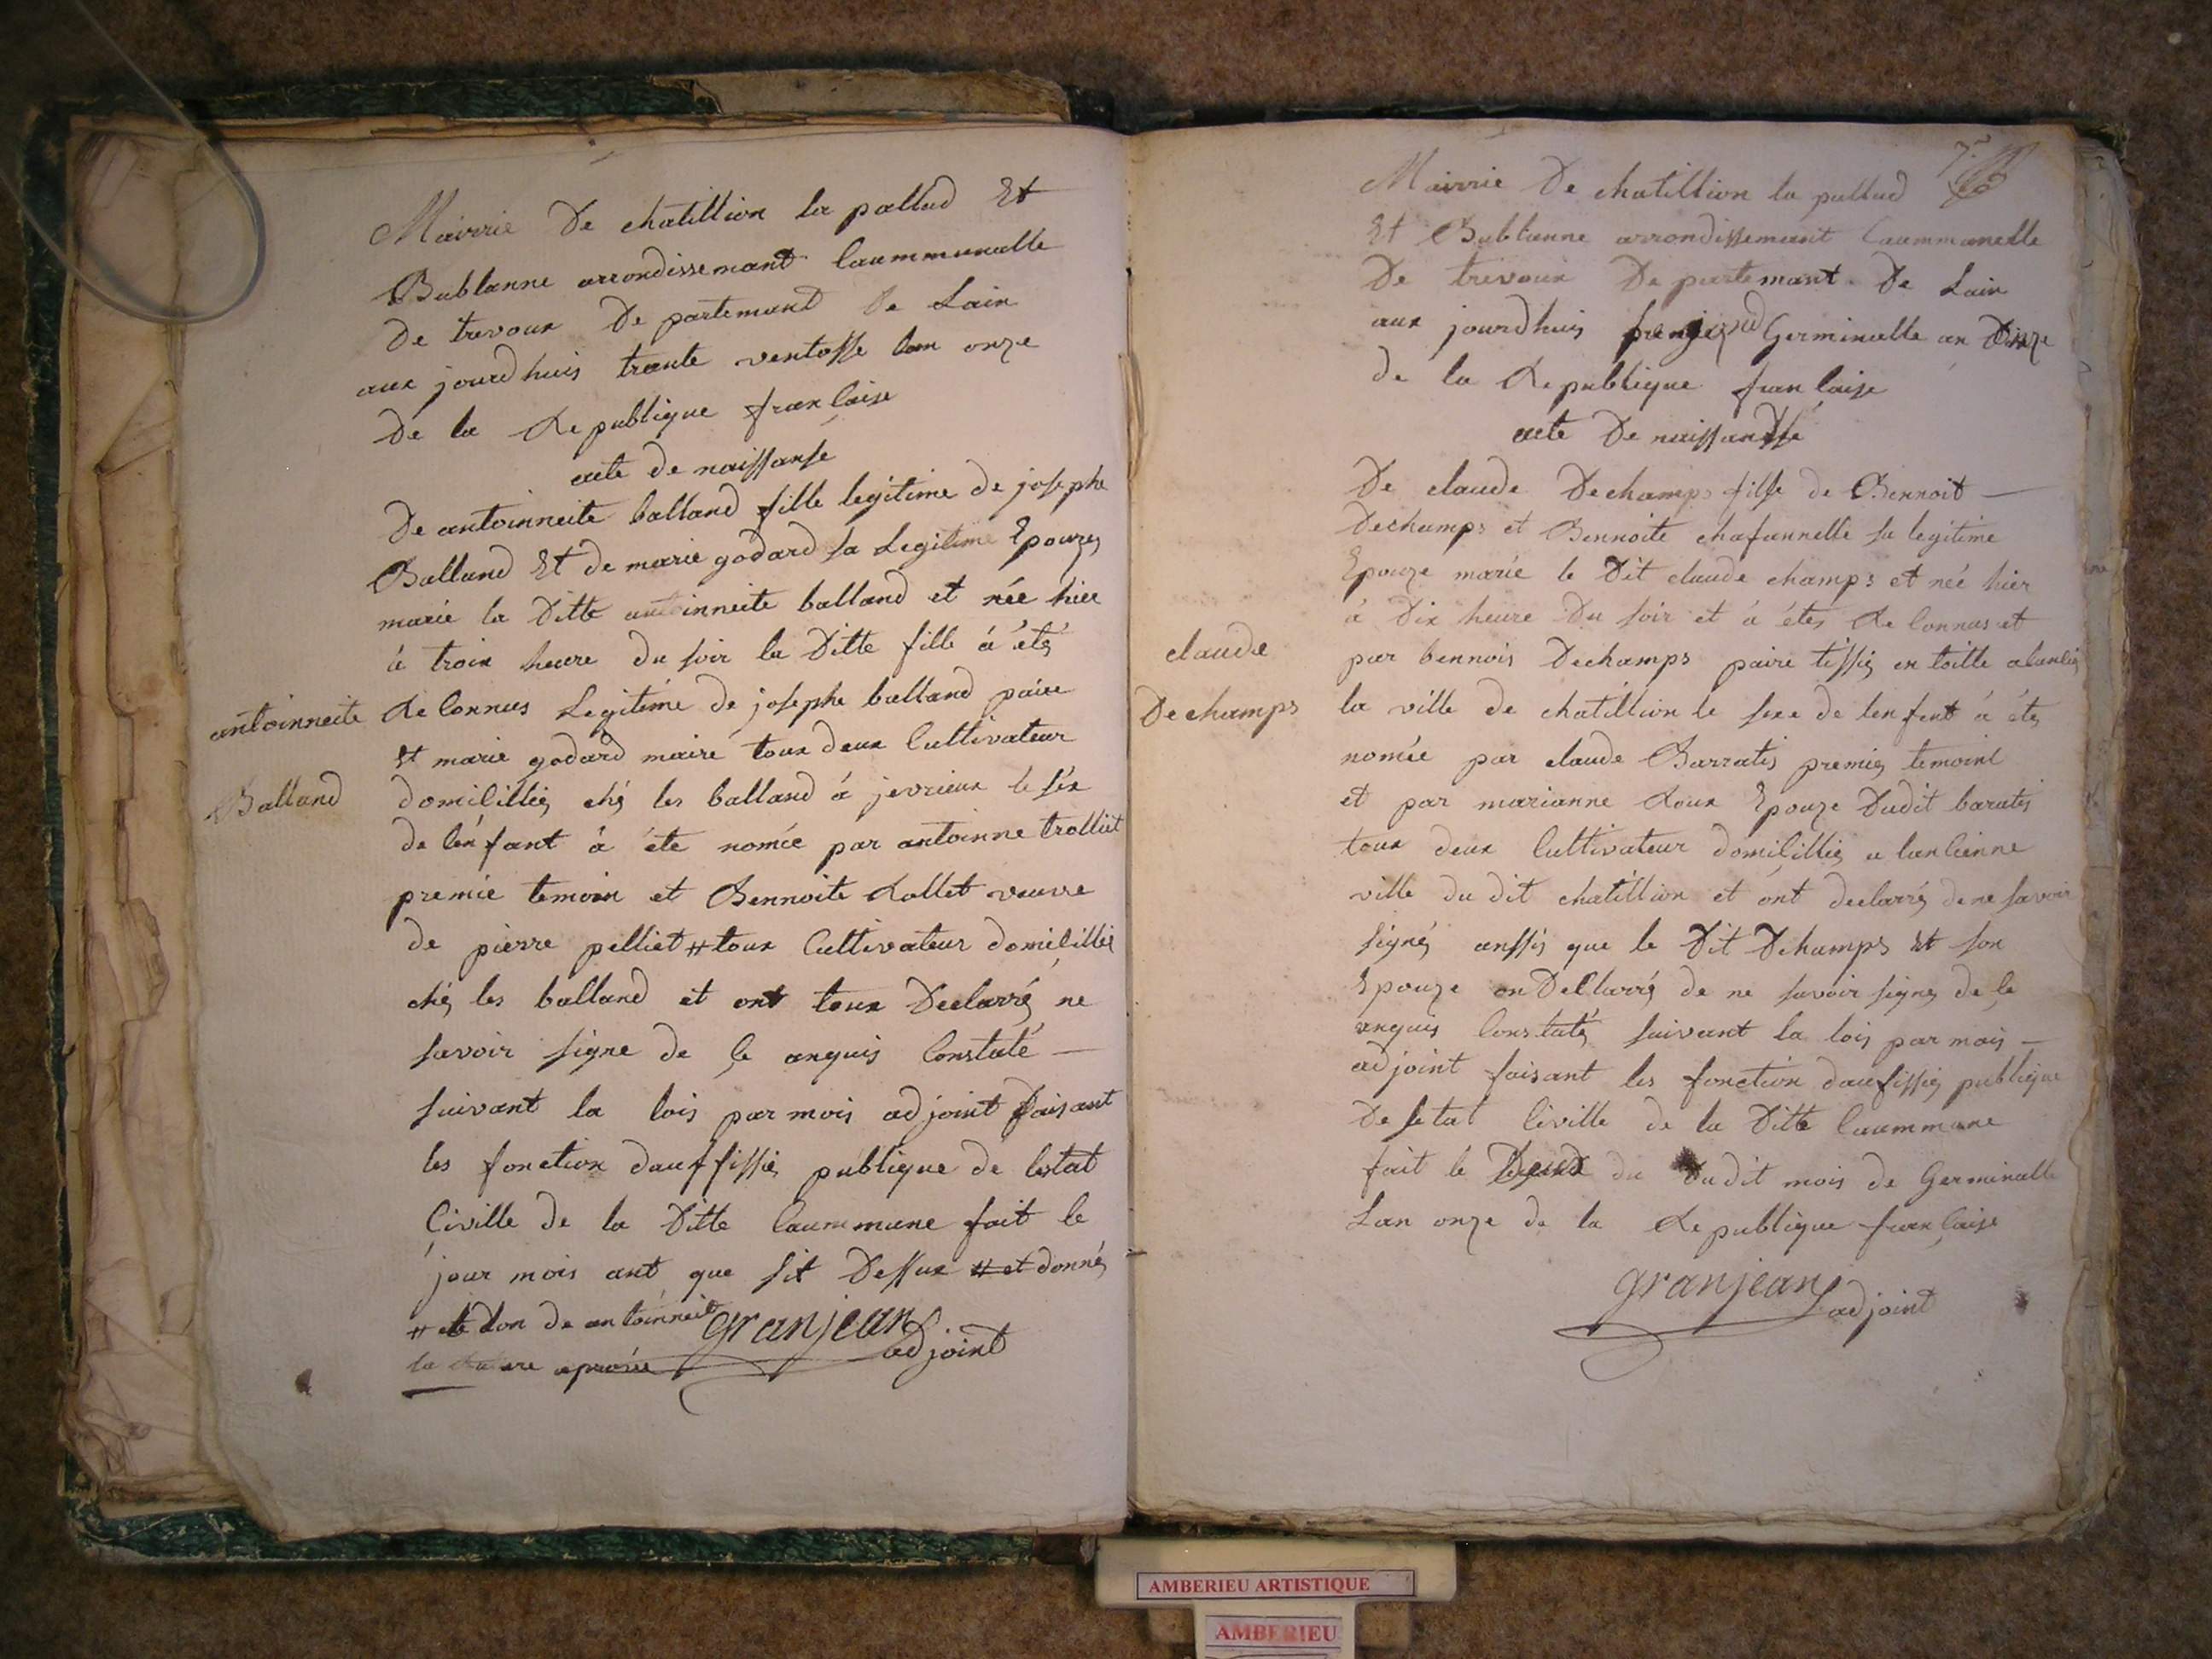 Mairrie De chatillion la pallud Et
Bublanne arrondissemant Caummunalle
De trevoux De partemand De Lain
aux jourdhuis trante ventosse lan onze
De la Republique francaise
acte de naissanse
De antoinneite balland fille legitime de josephe
Balland Et de marie godard sa Legitime Epouze
marié la Ditte antoinneite balland et née hier
à troix heure du soir la Ditte fille á étés
antoinneite
Reconnues Legitime de josephe balland paire
Et marie godard maire toux deux Cultivateur
Balland
domicilliés chés les balland á jevrieux le séx
de lénfant à éte nomée par antoinne trolliet
premié temoin et Bennoite Rollet veuve
de pierre pelliet # toux Cultivateur domicilliés
chés les balland et ont toux Declarré ne
savoir signe de ce anquis Constaté —
suivant la lois par mois adjoint faisant
les fonction dauffissiés publique de lestat
Civille de la Ditte Caummune fait le
jour mois ant que sit Dessux # et donnés
# et don de antoinneit
la aprouve
granjean
adjoint
7
Mairrie De chatillion la pallud
Et Bublanne arrondissemant Caummunalle
De trevoux De partemant De Lain
aux jourdhuis Germinalle an Onze
de la Republique francaise
acte De naissansse
De claude Dechamps filse de Bennoit —
Dechamps et Bennoite chafannelle sa legitime
Epouze marié le Dit claude champs et née hier
à Dix heure Du soir et á étés Reconnus et
claude
par bennois Dechamps paire tissiés en toille alanciés
Dechamps
la ville de chatillion le sexe de lenfent á étés
nomée par claude Barratis premiés temoint
et par marianne Roux Epouze Dudit baratis
toux deux Cultivateur domicilliés a lancienne
ville du dit chatillion et ont declarrés de ne savoir
signés aussis que le Dit Dchamps Et son
Epouze on Dellarrés de ne savoir signés de ce
anquis Constatés suivant la lois par mois —
adjoint faisant les fonction daufissiés publique
De letat Civille de la Ditte Caummune
fait le du Dudit mois de Germinalle
Lan onze de la Republique francaise
granjean
adjoint
AMBERIEU ARTISTIQUE
AMBERIEU